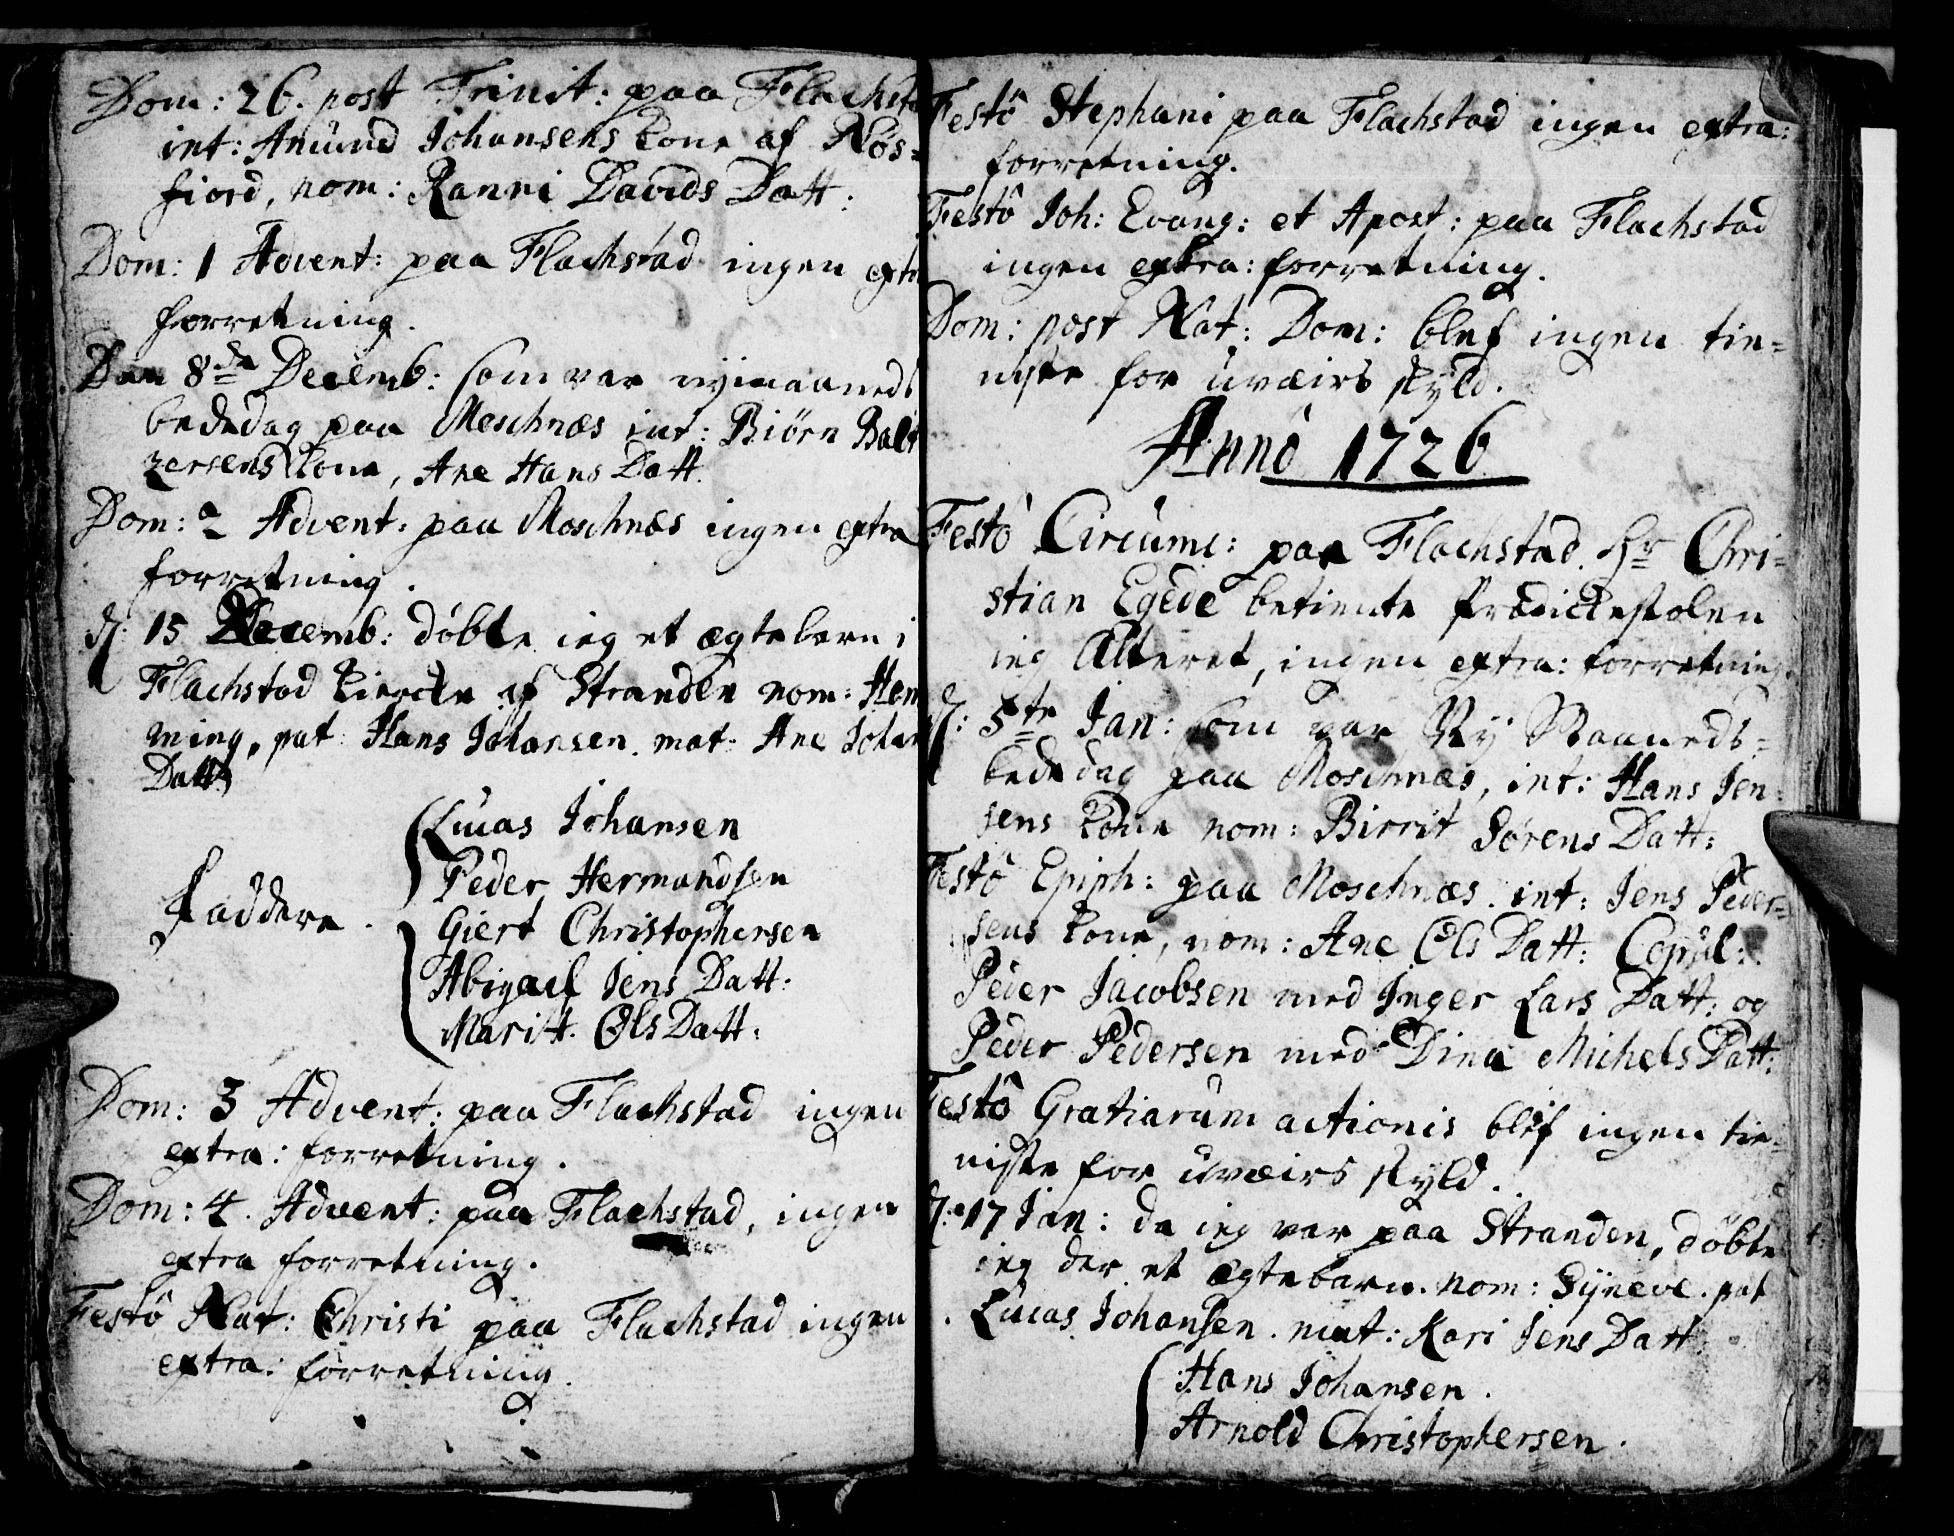 Dom: 26. post Trinit: paa Flachsta
int: Amund Johansens kone af Nøs=
fiord, nom: Ranni Davids Datt:
Dom: 1 Advent: paa Flachstad ingen extr
forretning.
Den 8de Decemb: som var nymaaneds
bededag paa Moschnæs int: Biørn Balt
zersens kone, Ane Hans Datt.
Dom: 2 Advent: paa Moschnæs ingen extra
forretning.
d: 15 Decemb: døbte ieg et ægtebarn i
Flachstad kircke af Stranden nom: Hen
ning, pat: Hans Johansen. mat: Ane Johan
Datt:
Lucas Johansen
Peder Hermandsen
Faddere.
Giert Christophersen
Abigael Jens Datt:
Maritt. Ols Datt:
Dom: 3 Advent: paa Flachstad ingen
extra: forretning.
Dom: 4. Advent: paa Flachstad, ingen
extra forretning.
Festô Nat: Christi paa Flachstad ingen
extra: forretning.
Festô Stephani paa Flachstad ingen extra:
forretning.
Festô Joh: Evang: et Apost: paa Flachstad
ingen extra: forretning.
Dom: post Nat: Dom: blef ingen tie=
niste for uvæirs skyld.
Annô 1726
Festô Circumc: paa Flachstad. Hr Chri=
stian Egede betiente Prædickestolen
ieg Alteret, ingen extra: forretning.
d: 5te Jan: som var Ny Maaneds=
bededag paa Moschnæs, int: Hans Jen=
sens kone nom: Birrit Sørens Datt:
Festô Epiph: paa Moschnæs. int: Jens Peder=
sens kone, nom: Ane Ols Datt: Copul:
Peder Jacobsen med Inger Lars Datt: og
Peder Pedersen med Dina Michels Datt:
Festô Gratiarum actionis blef ingen tie=
niste for uvæirs skyld.
d: 17 Jan: da ieg var paa Stranden, døbte
ieg der et ægtebarn. nom: Syneve. pat
Lucas Johansen. mat: Kari Jens Datt
Hans Johansen.
Arnold Christophersen.